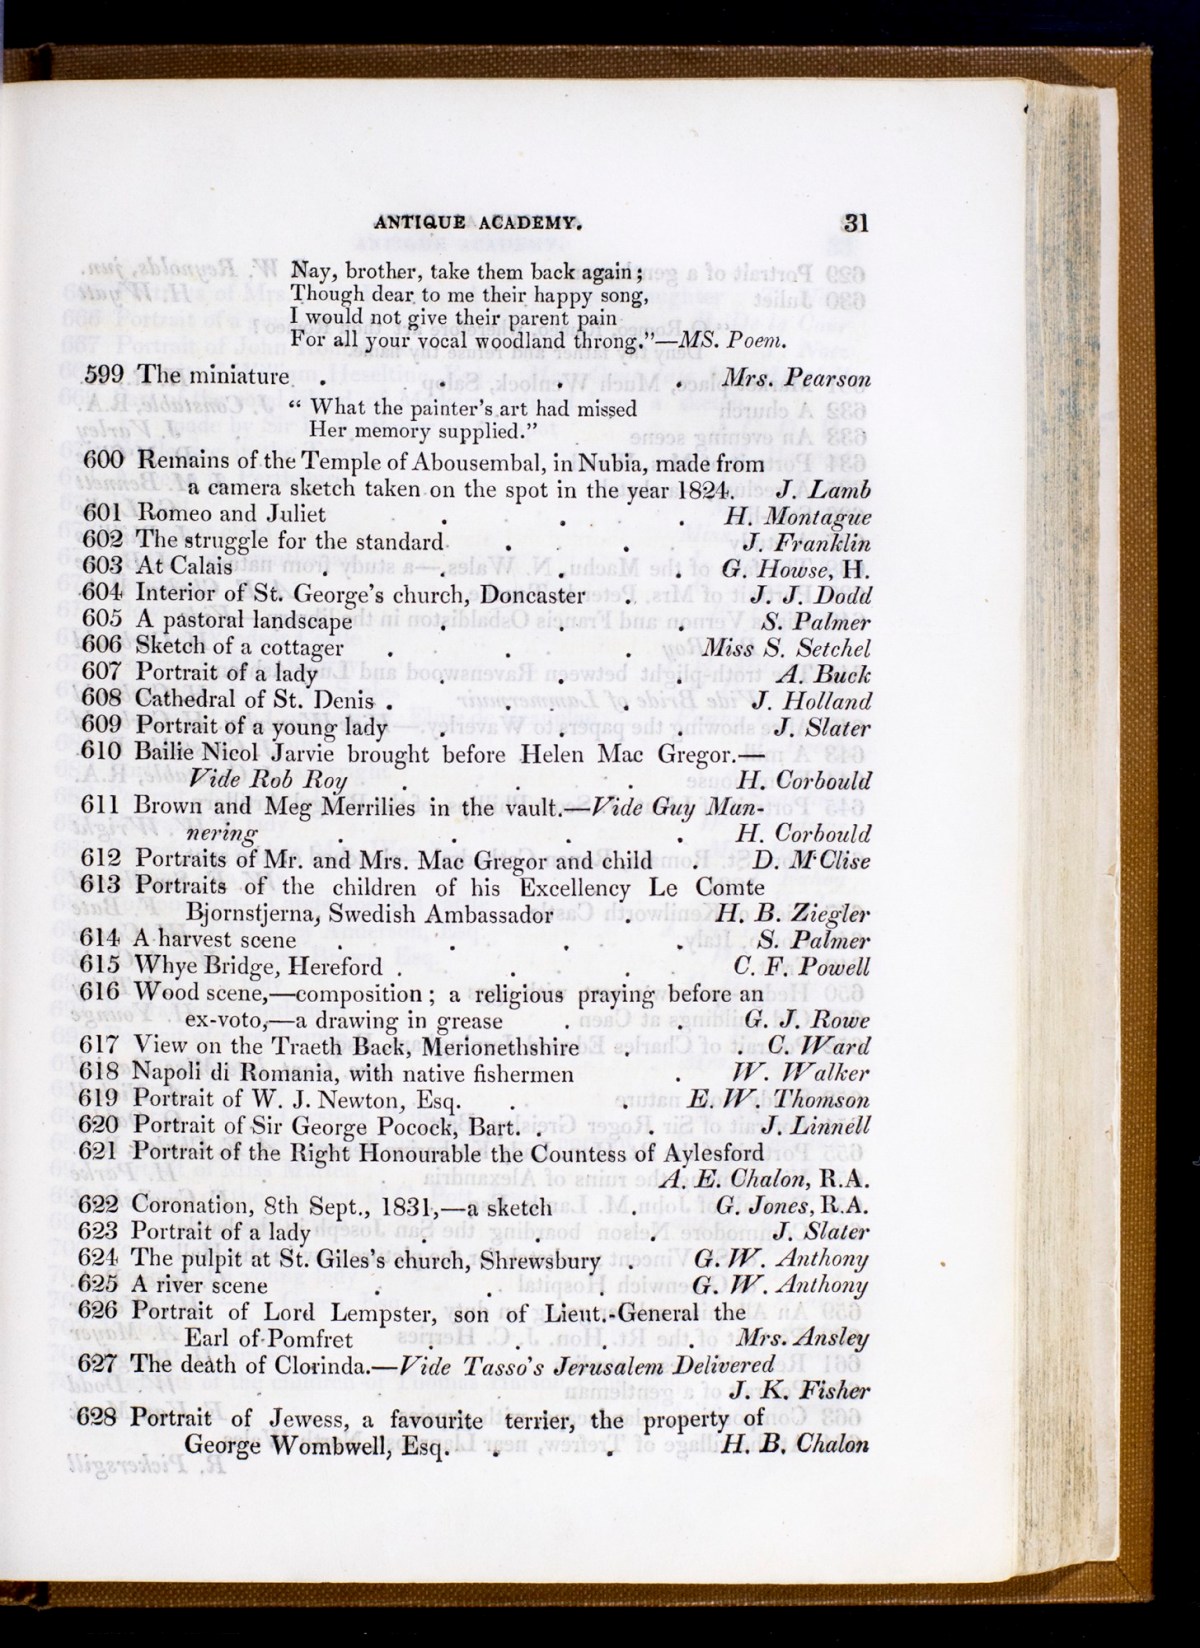 ANTIQUE ACADEMY. 31
Nay, brother, take them back again;
Though dear to me their happy song,
I would not give their parent pain
For all your vocal woodland throng."—MS. Poem.
599 The miniature . . . . Mrs. Pearson
"What the painter's art had missed
Her memory supplied."
600 Remains of the Temple of Abousembal, in Nubia, made from
a camera sketch taken on the spot in the year 1824. J. Lamb
601 Romeo and Juliet . . . H. Montague
602 The struggle for the standard . . J. Franklin
603 At Calais . . . . G. Howse, H.
604 Interior of St. George's church, Doncaster . J. J. Dodd
605 A pastoral landscape . . . S. Palmer
606 Sketch of a cottager . . . Miss S. Setchel
607 Portrait of a lady . . . A. Buck
608 Cathedral of St. Denis . . . J. Holland
609 Portrait of a young lady . . . J. Slater
610 Bailie Nicol Jarvie brought before Helen Mac Gregor.—
Vide Rob Roy . . . H. Corbould
611 Brown and Meg Merrilies in the vault.—Vide Guy Man-
nering . . . . H. Corbould
612 Portraits of Mr. and Mrs. Mac Gregor and child . D. M'Clise
613 Portraits of the children of his Excellency Le Comte
Bjornstjerna, Swedish Ambassador . H. B. Ziegler
614 A harvest scene . . . . S. Palmer
615 Whye Bridge, Hereford . . . C. F. Powell
616 Wood scene,—composition; a religious praying before an
ex-voto,—a drawing in grease . . G. J. Rowe
617 View on the Traeth Back, Merionethshire . . C. Ward
618 Napoli di Romania, with native fishermen . W. Walker
619 Portrait of W. J. Newton, Esq. . . E. W. Thomson
620 Portrait of Sir George Pocock, Bart. . . J. Linnell
621 Portrait of the Right Honourable the Countess of Aylesford
A. E. Chalon, R.A.
622 Coronation, 8th Sept., 1831,—a sketch . G. Jones, R.A.
623 Portrait of a lady . . . J. Slater
624 The pulpit at St. Giles's church, Shrewsbury . G. W. Anthony
625 A river scene . . . G. W. Anthony
626 Portrait of Lord Lempster, son of Lieut.-General the
Earl of Pomfret . . . Mrs. Ansley
627 The death of Clorinda.—Vide Tasso's Jerusalem Delivered
J. K. Fisher
628 Portrait of Jewess, a favourite terrier, the property of
George Wombwell, Esq. . . H. B. Chalon